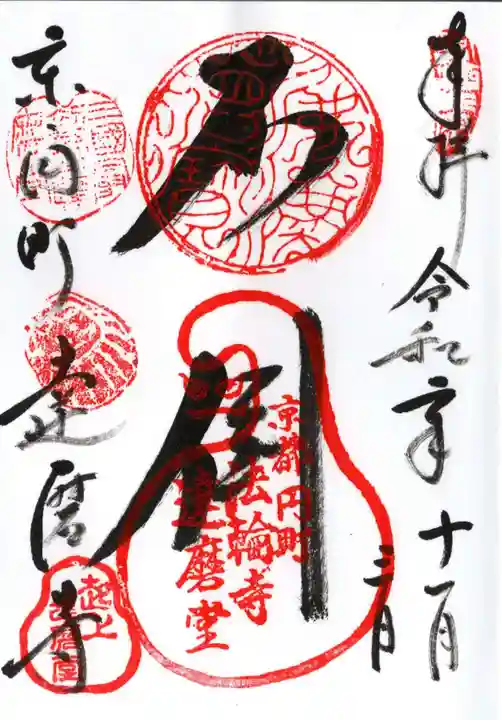 奉拝 令和元年十一月
三日
不倒
京都円町
法輪寺
達磨堂
京・円町 達磨寺
起上
達磨堂